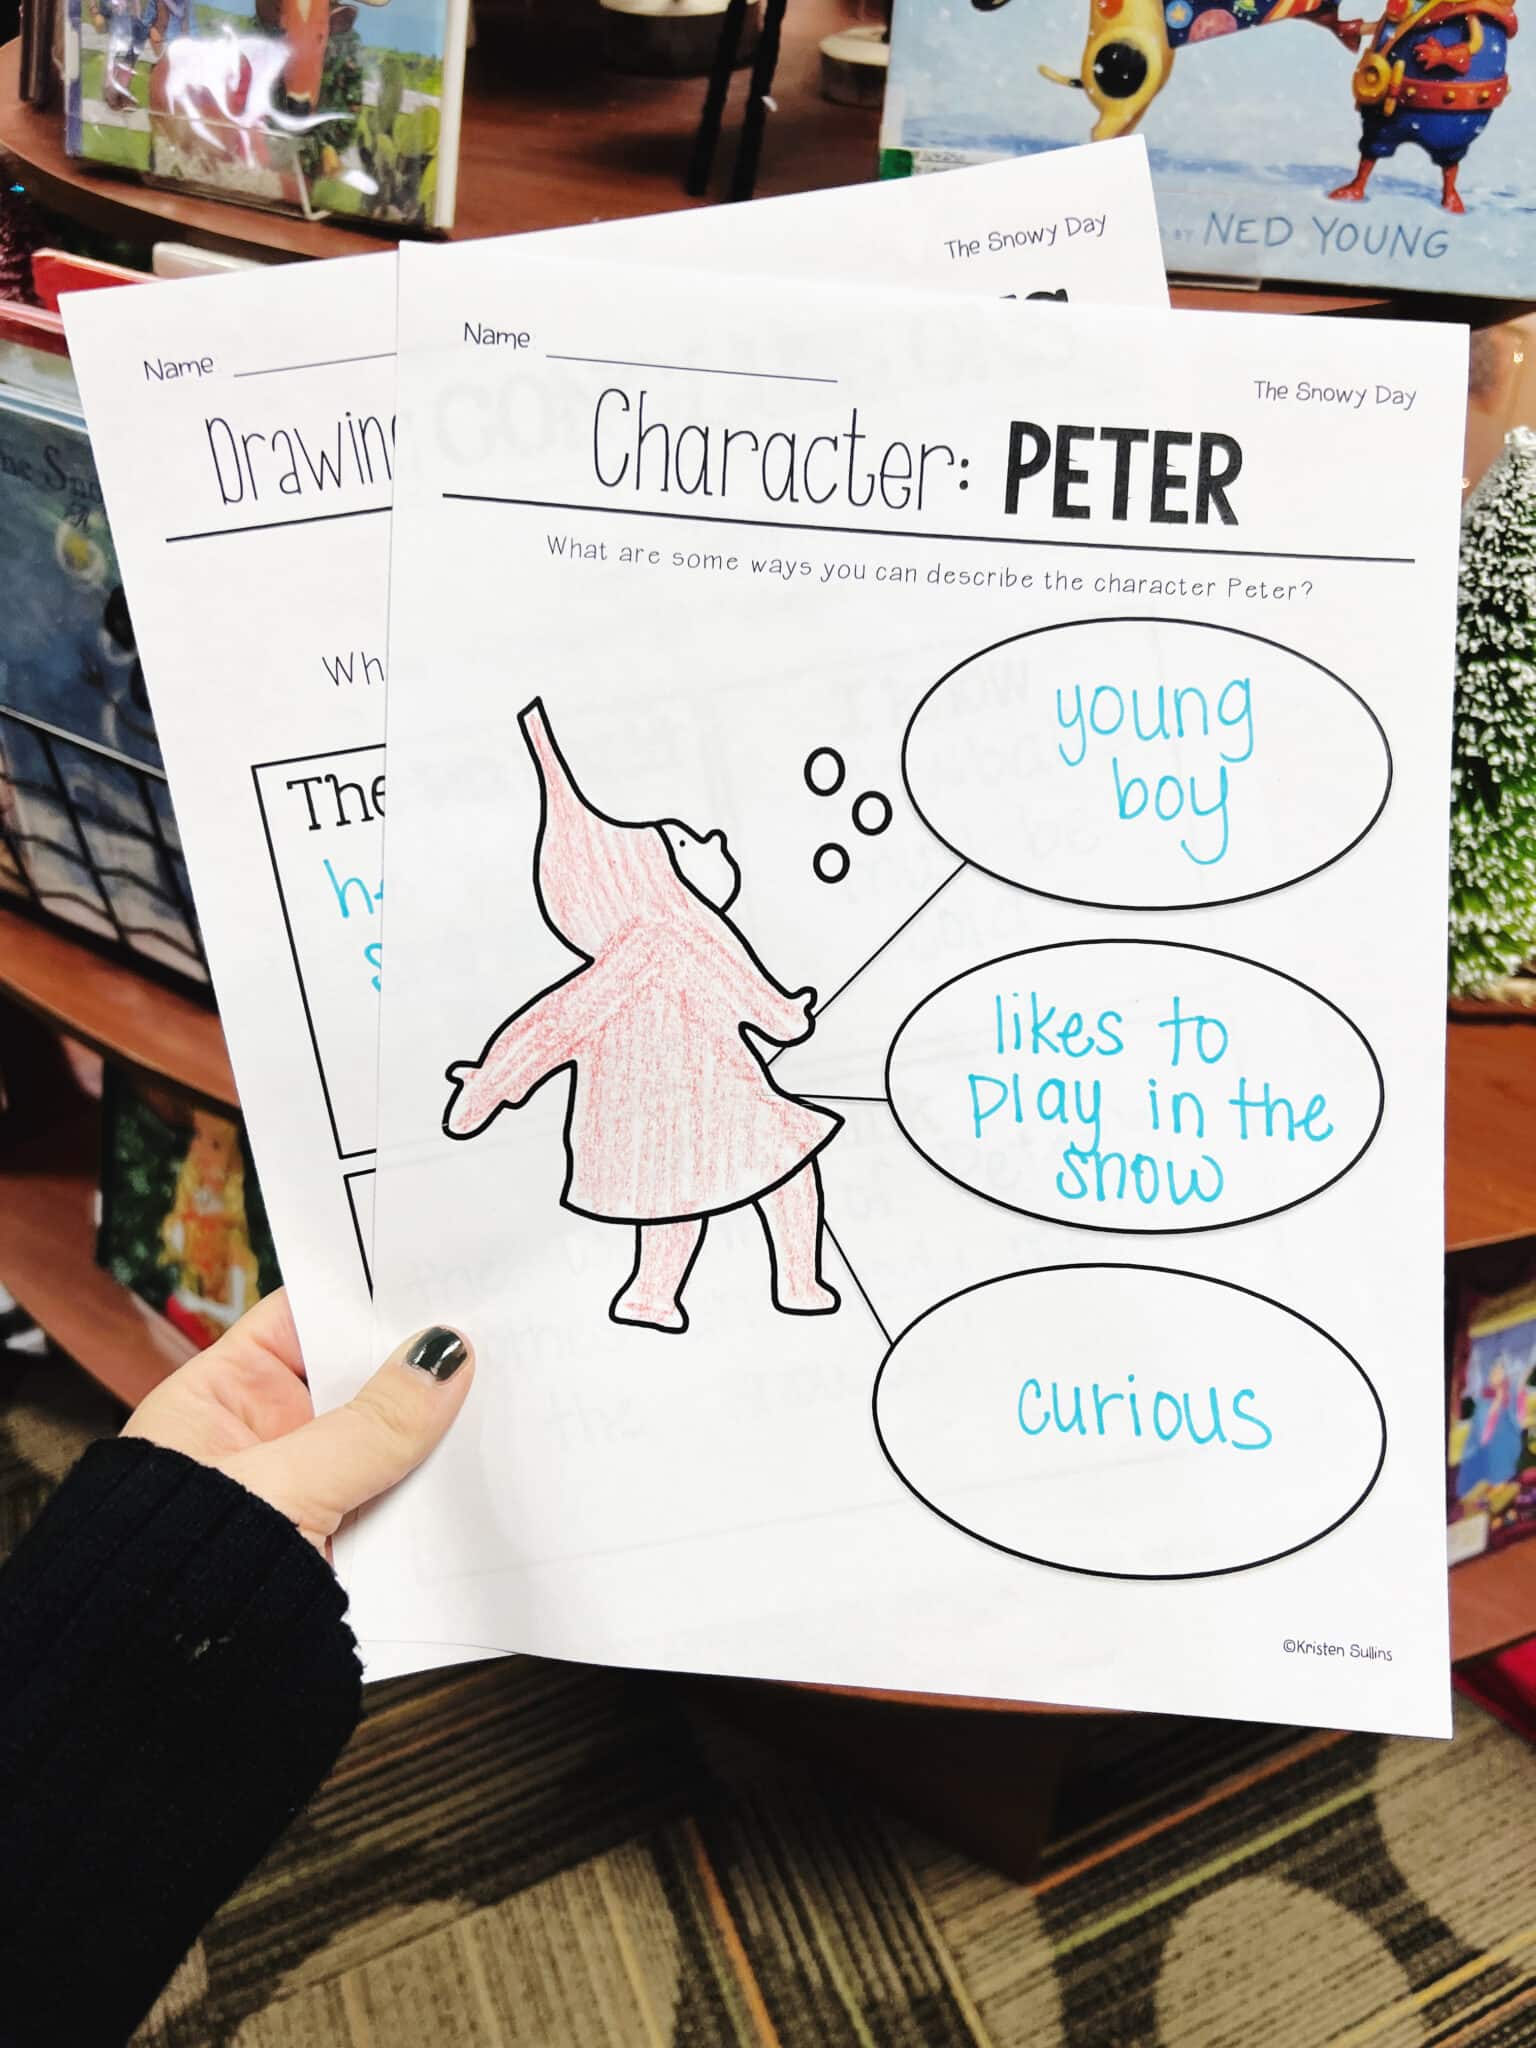 NED YOUNG
The Snowy Day
Name
Name
The Snowy Day
Character: PETER
What are some ways you can describe the character Peter?
young
boy
likes to
play in the
snow
curious
The
©Kristen Sullins